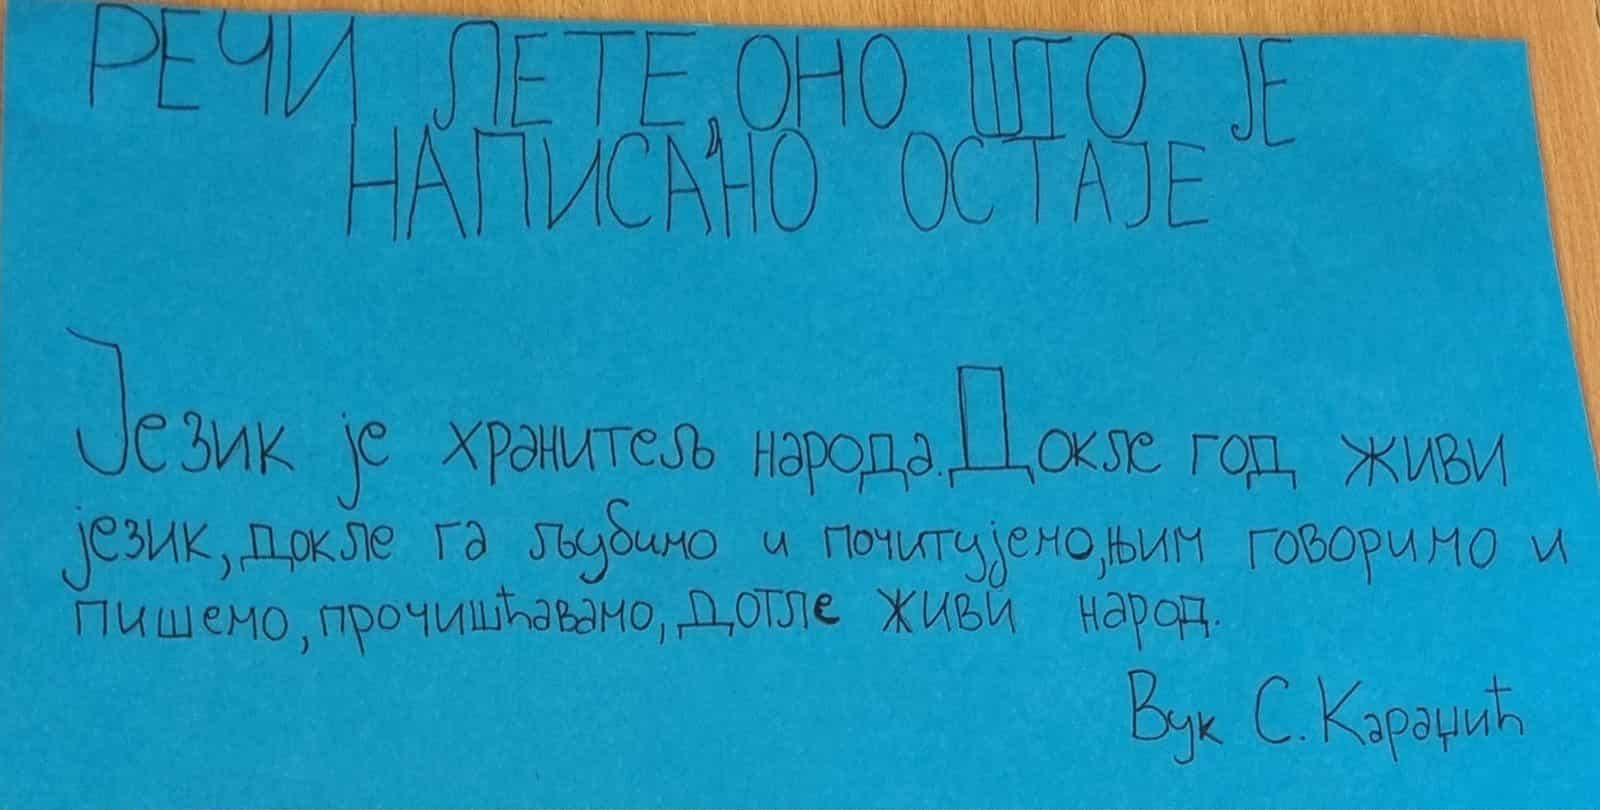 РЕЧИ ЛЕТЕ, ОНО ШТО ЈЕ
НАПИСАНО ОСТАЈЕ
Језик је хранитељ народа. Докле год живи
језик, докле га љубимо и почитујемо, њим говоримо и
пишемо, прочишћавамо, дотле живи народ.
Вук С. Караџић